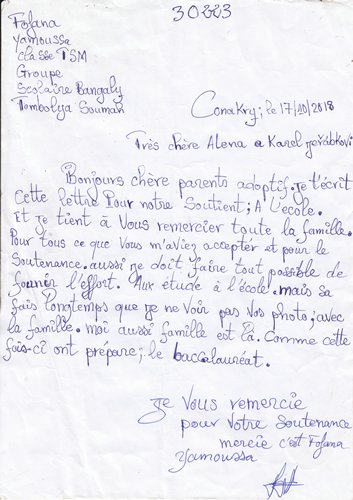 30223
Fofana
Yamoussa
classe TSM
Groupe
Scolaire Bangaly
Tombolya Soumah
Conakry; le 17/10/2018
Très chère Alena a Karel Jeřábkovi
Bonjours chère parents adoptif. Je t'écrit
Cette lettre Pour notre Soutient; A l'école.
Et je tient à Vous remercier toute la famille.
Pour tous ce que Vous m'aviez accepter et pour le
Soutenance. aussi je doit faire tout possible de
founir l'effort. Aux étude à l'école. mais sa
fais longtemps que je ne Voir pas Vos photo; avec
la famille. moi aussi famille est là. Comme cette
fois-ci ont prépare; le baccalauréat.
Je Vous remercie
pour Votre Soutenance
mercie c'est Fofana
Yamoussa